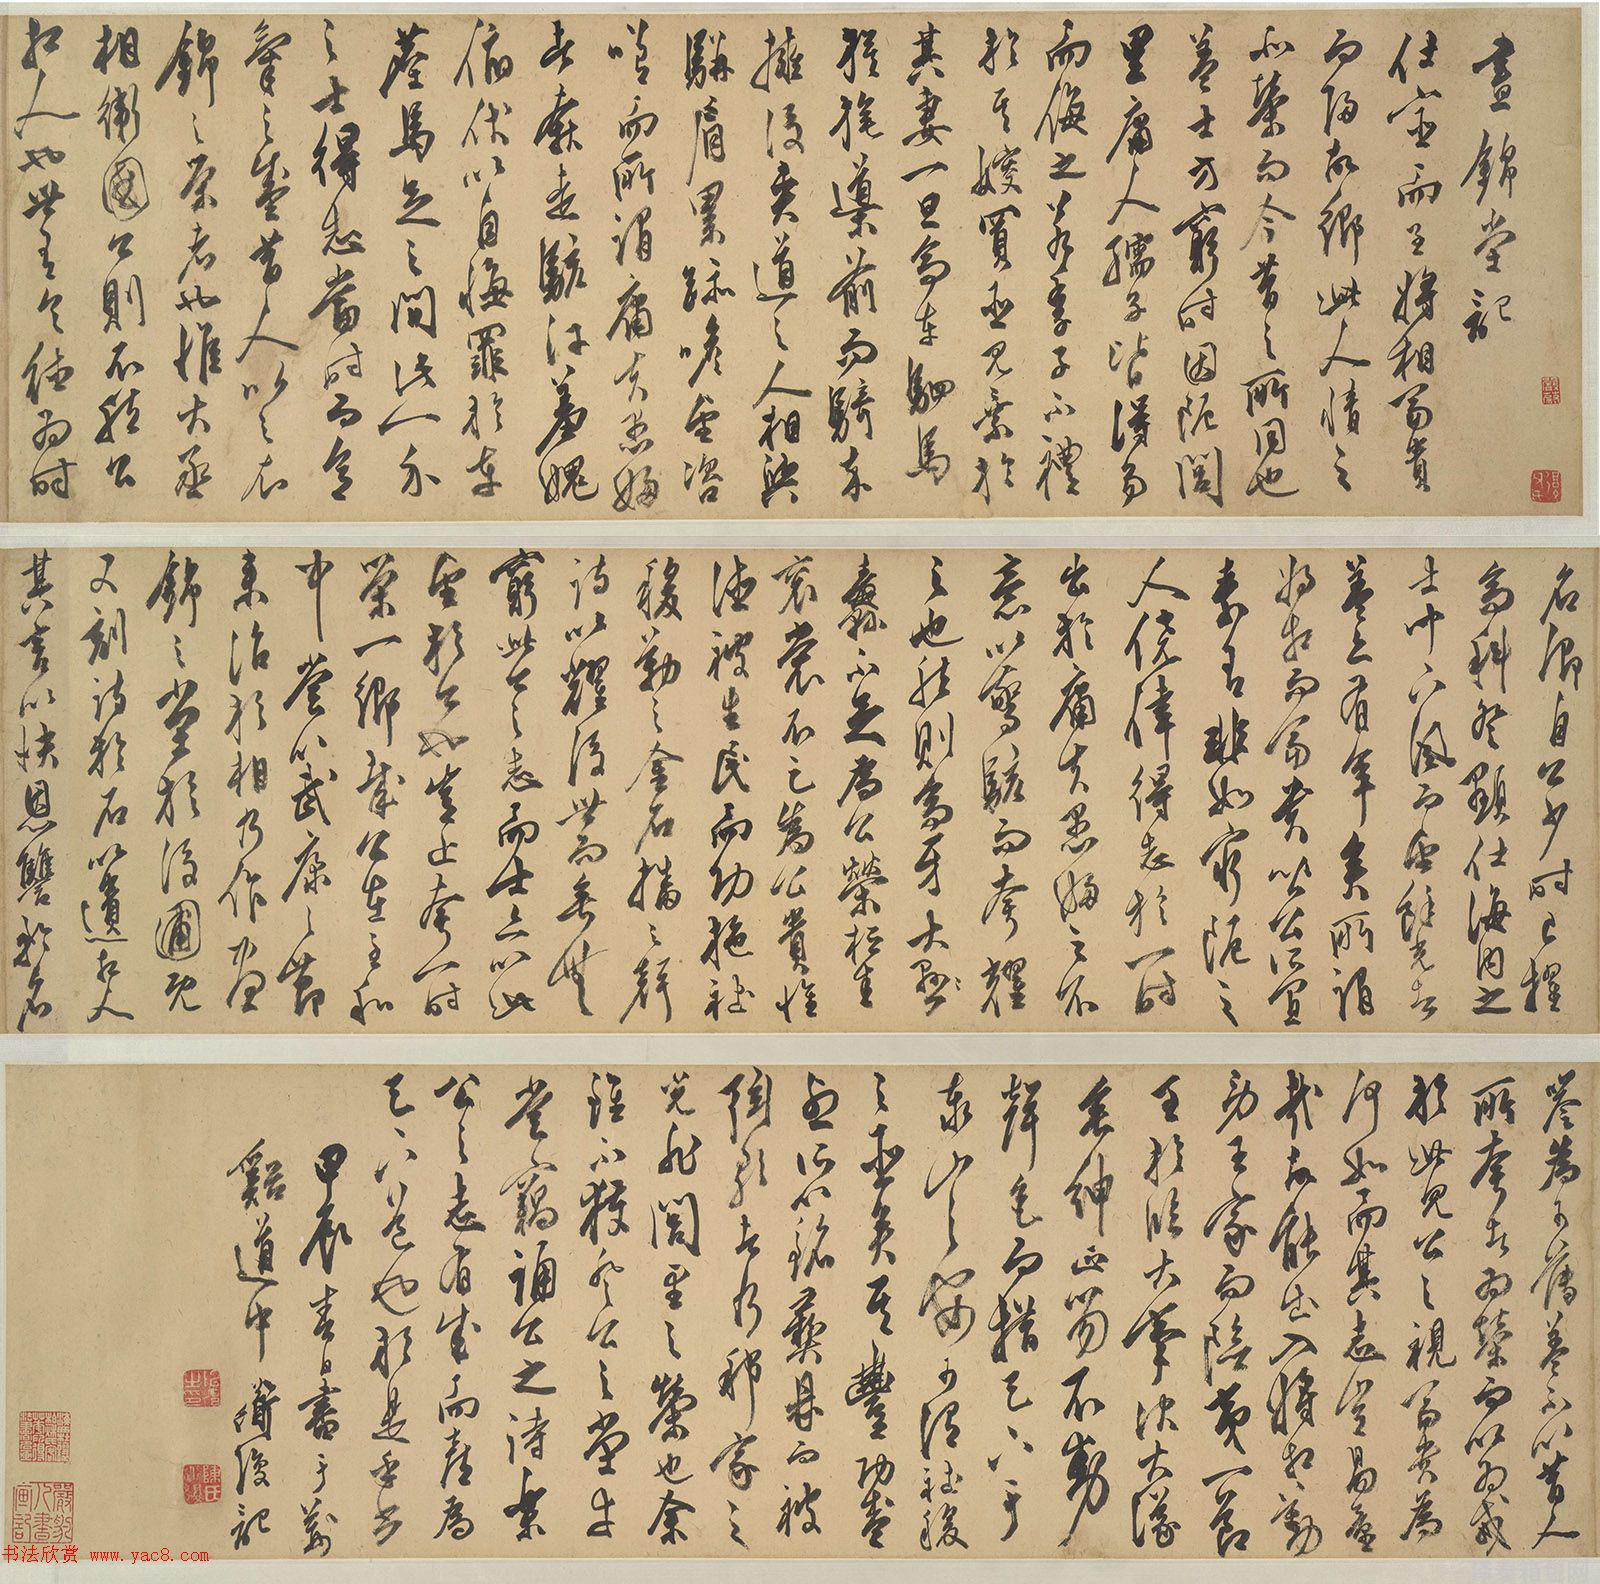 晝錦堂記
仕宦而至將相富貴
而歸故鄉此人情之
所榮而今昔之所同也
蓋士方窮時困阨閭
里庸人孺子皆得易
而侮之若季子不禮
於其嫂買臣見棄於
其妻一旦高車駟馬
旗旄導前而騎卒
擁後夾道之人相與
駢肩累跡瞻望咨
嗟而所謂庸夫愚婦
者奔走駭汗羞愧
俯伏以自悔罪於車
塵馬足之間此一介
之士得志當時而意
氣之盛昔人比之衣
錦之榮者也惟大丞
相衛國公則不然公
相人也世有令德為時
名卿自公少時已擢
高科登顯仕海內之
士聞下風而望餘光者
蓋亦有年矣所謂
將相而富貴皆公所宜
素有非如窮阨之
人僥倖得志於一時
出於庸夫愚婦之不
意以驚駭而夸耀
之也然則高牙大
纛不足為公榮桓圭
袞裳不足為公貴惟
德被生民而功施社
稷勒之金石播之聲
詩以耀後世而垂無
窮此公之志而士亦以此
望於公也豈止夸一時
榮一鄉哉公在至和
中嘗以武康之節
來治於相乃作晝
錦之堂於後圃既
又刻詩於石以遺相人
其言以快恩讎矜名
譽為可薄蓋不以昔人
所夸者為榮而以為戒
於此見公之視富貴為
何如而其志豈易量
哉故能出入將相勤
勞王家而險夷一節
至於臨大事決大議
垂紳正笏不動
聲色而措天下于
泰山之安可謂社稷
之臣矣其豐功盛
烈所以銘彝鼎而被
絃歌者乃邦家之
光非閭里之榮也余
雖不獲登公之堂幸
嘗竊誦公之詩樂
公之志有成而喜為
天下道也於是乎書
甲辰春日書于
谿道中 復記
书法欣赏 www.yac8.com